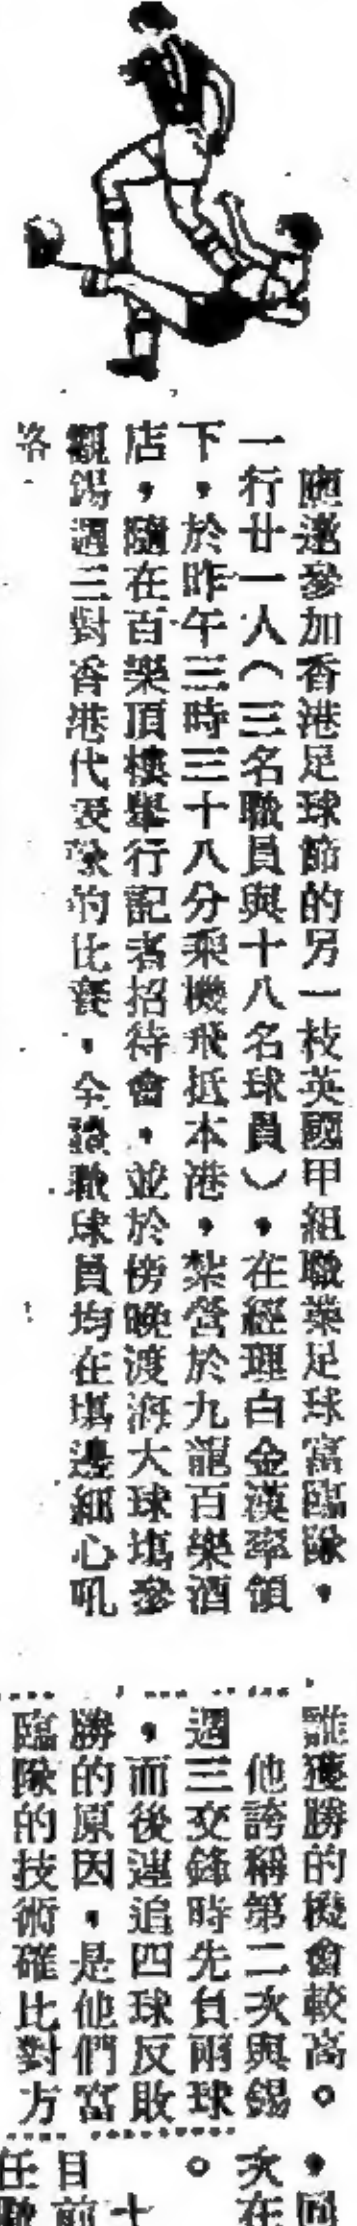 應邀參加香港足球節的另一枝英國甲組職業足球富臨隊，
一行廿一人（三名職員與十八名球員），在經理白金漢率領
下，於昨午三時三十八分乘機飛抵本港，紮營於九龍百樂酒
店，隨在百樂頂樓舉行記者招待會，並於傍晚渡海大球塲參
觀錫週三對香港代表隊的比賽，全體職球員均在塲邊細心吼
咯
誰獲勝的機會較高。
他誇稱第二次與錫
週三交鋒時先負兩球
，而後連追四球反敗
勝的原因，是他們富
臨隊的技術確比對方
，回
次在
。
十
目前
任職